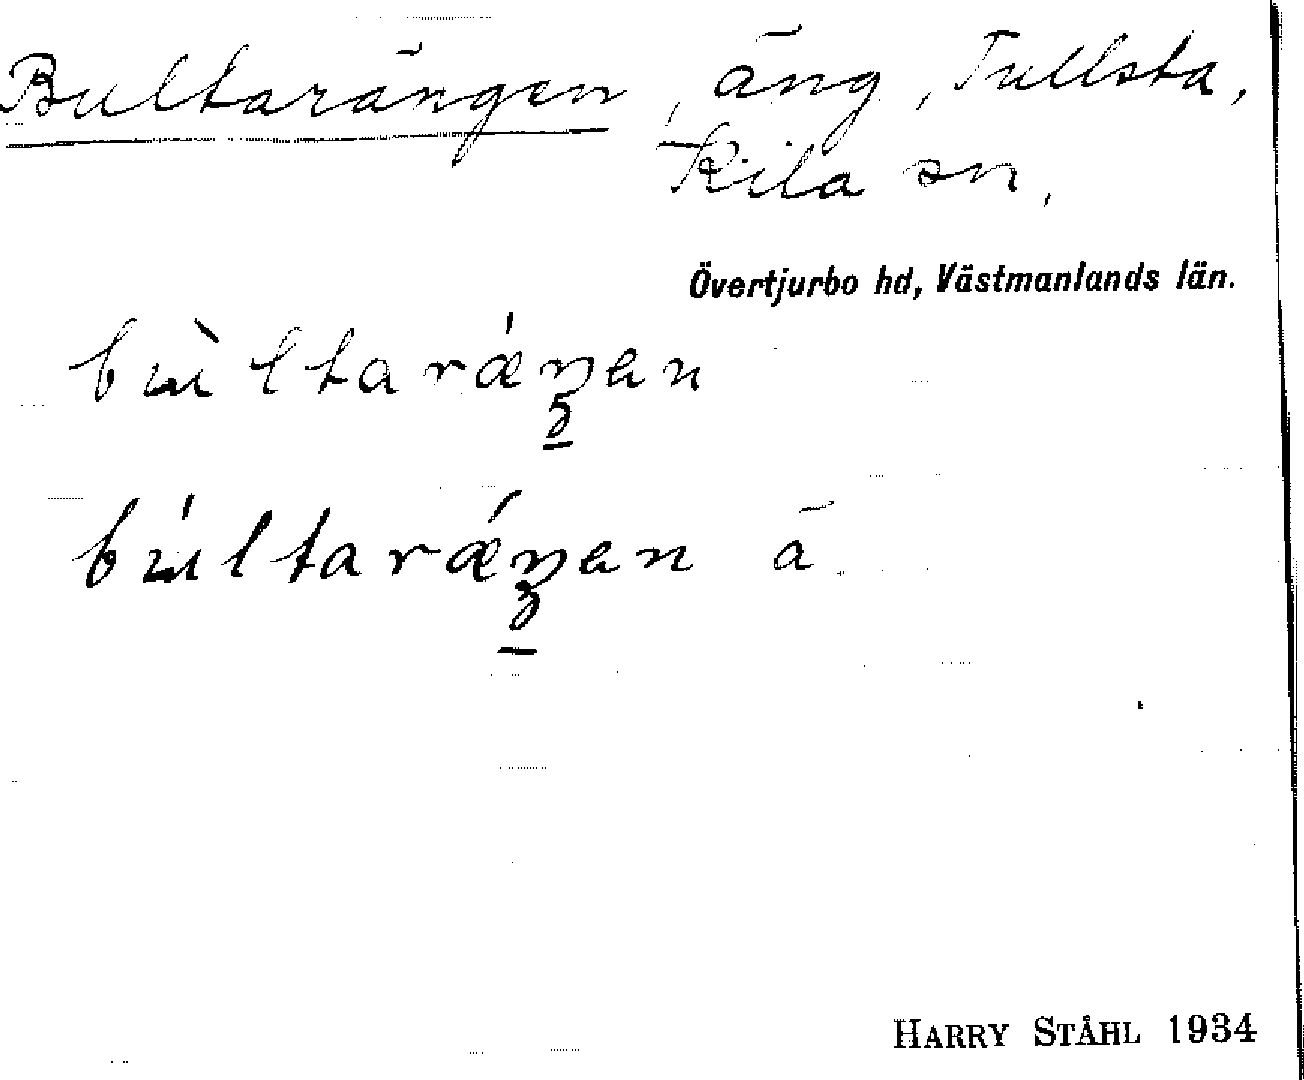 Bultarängen, äng, Tullsta,
Kila sn,
Övertjurbo hd, Västmanlands län.
bùltaræ´ŋen
bu´ltaræ´ŋen ā
HARRY STÅHL 1934